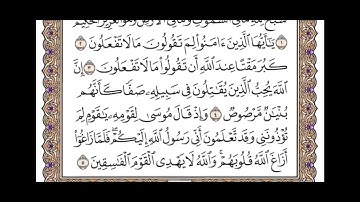 سَبَّحَ لِلَّهِ مَا فِي ٱلسَّمَٰوَٰتِ وَمَا فِي ٱلْأَرْضِ وَهُوَ ٱلْعَزِيزُ ٱلْحَكِيمُ
١ يَٰٓأَيُّهَا ٱلَّذِينَ ءَامَنُوا۟ لِمَ تَقُولُونَ مَا لَا تَفْعَلُونَ ٢
كَبُرَ مَقْتًا عِندَ ٱللَّهِ أَن تَقُولُوا۟ مَا لَا تَفْعَلُونَ ٣ إِنَّ
ٱللَّهَ يُحِبُّ ٱلَّذِينَ يُقَٰتِلُونَ فِي سَبِيلِهِۦ صَفًّا كَأَنَّهُم
بُنْيَٰنٌ مَّرْصُوصٌ ٤ وَإِذْ قَالَ مُوسَىٰ لِقَوْمِهِۦ يَٰقَوْمِ لِمَ
تُؤْذُونَنِي وَقَد تَّعْلَمُونَ أَنِّي رَسُولُ ٱللَّهِ إِلَيْكُمْ فَلَمَّا زَاغُوٓا۟
أَزَاغَ ٱللَّهُ قُلُوبَهُمْ وَٱللَّهُ لَا يَهْدِي ٱلْقَوْمَ ٱلْفَٰسِقِينَ ٥